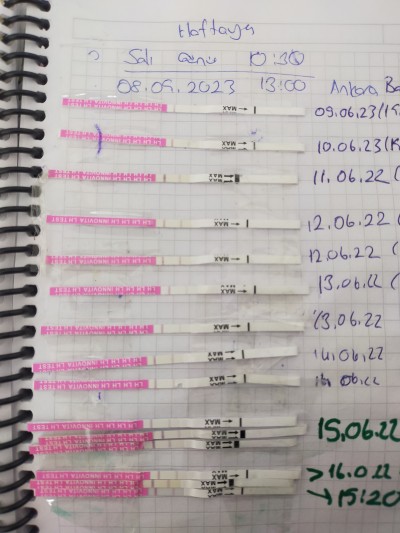 Haftaya
Salı Günü 10:30
08.09.2023 13:00 Ankara
MAX
09.06.23
LH INNOVITA LH TEST
MAX
10.06.23
MAX
11.06.22
LH INNOVITA LH TEST
MAX
12.06.22
LH INNOVITA LH TEST
MAX
12.06.22
LH INNOVITA LH TEST
MAX
13.06.22
MAX
13.06.22
LH INNOVITA LH TEST
MAX
14.06.22
LH INNOVITA LH TEST
MAX
14.06.22
LH INNOVITA LH TEST
MAX
15.06.22
MAX
MAX
LH INNOVITA LH TEST
MAX
>16.0
MAX
MAX